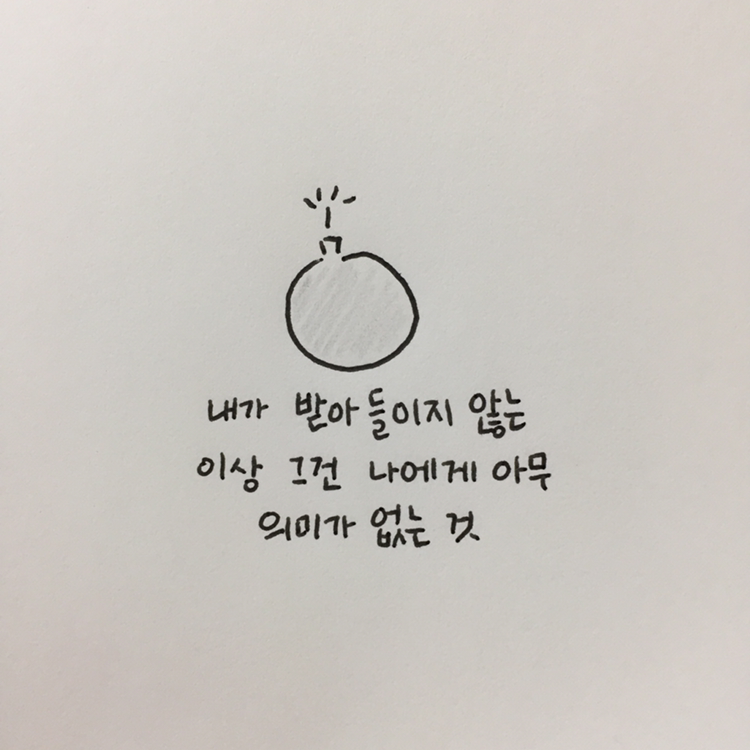 내가 받아들이지 않는
이상 그건 나에게 아무
의미가 없는 것